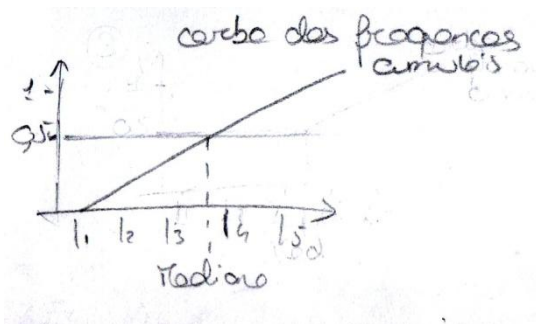 corba des freqüences
cumulés
1
0,5
l₁ l₂ l₃ l₄ l₅
Mediane